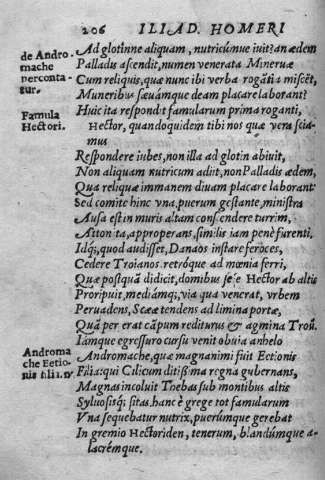 206 ILIAD. HOMERI
de Andro
mache
perconta-
tur.
Ad glotinne aliquam, nutricúmue iuit? an ædem
Palladis ascendit, numen venerata Mineruæ
Cum reliquis, quæ nunc ibi verba rogātia miscēt,
Muneribus sæuámque deam placare laborant?
Famula
Hectori.
Huic ita respondit famularum prima roganti,
Hector, quandoquidem tibi nos quæ vera scia-
mus
Respondere iubes, non illa ad glotin abiuit,
Non aliquam nutricum adiit, non Palladis ædem,
Qua reliquæ immanem diuam placare laborant:
Sed comite hinc vna, puerum gestante, ministra
Ausa est in muris altam conscendere turrim,
Attonita, approperans, similis iam penè furenti,
Idq;, quod audisset, Danaos instare feroces,
Cedere Troianos, retróque ad mœnia ferri,
Quæ postquā didicit, domibus sese Hector ab altis
Proripuit, mediámq;, via qua venerat, vrbem
Peruadens, Scææ tendens ad limina portæ,
Quā per erat cāpum rediturus & agmina Troū.
Iámque egressuro cursu venit obuia anhelo
Androma
che Eetio-
nis filia.
Andromache, quæ magnanimi fuit Eetionis
Filia: qui Cilicum ditissima regna gubernans,
Magnas incoluit Thebas sub montibus altis
Syluosisq; sitas. hanc è grege tot famularum
Vna sequebatur nutrix, puerúmque gerebat
In gremio Hectoriden, tenerum, blandúmque a-
lacrémque.